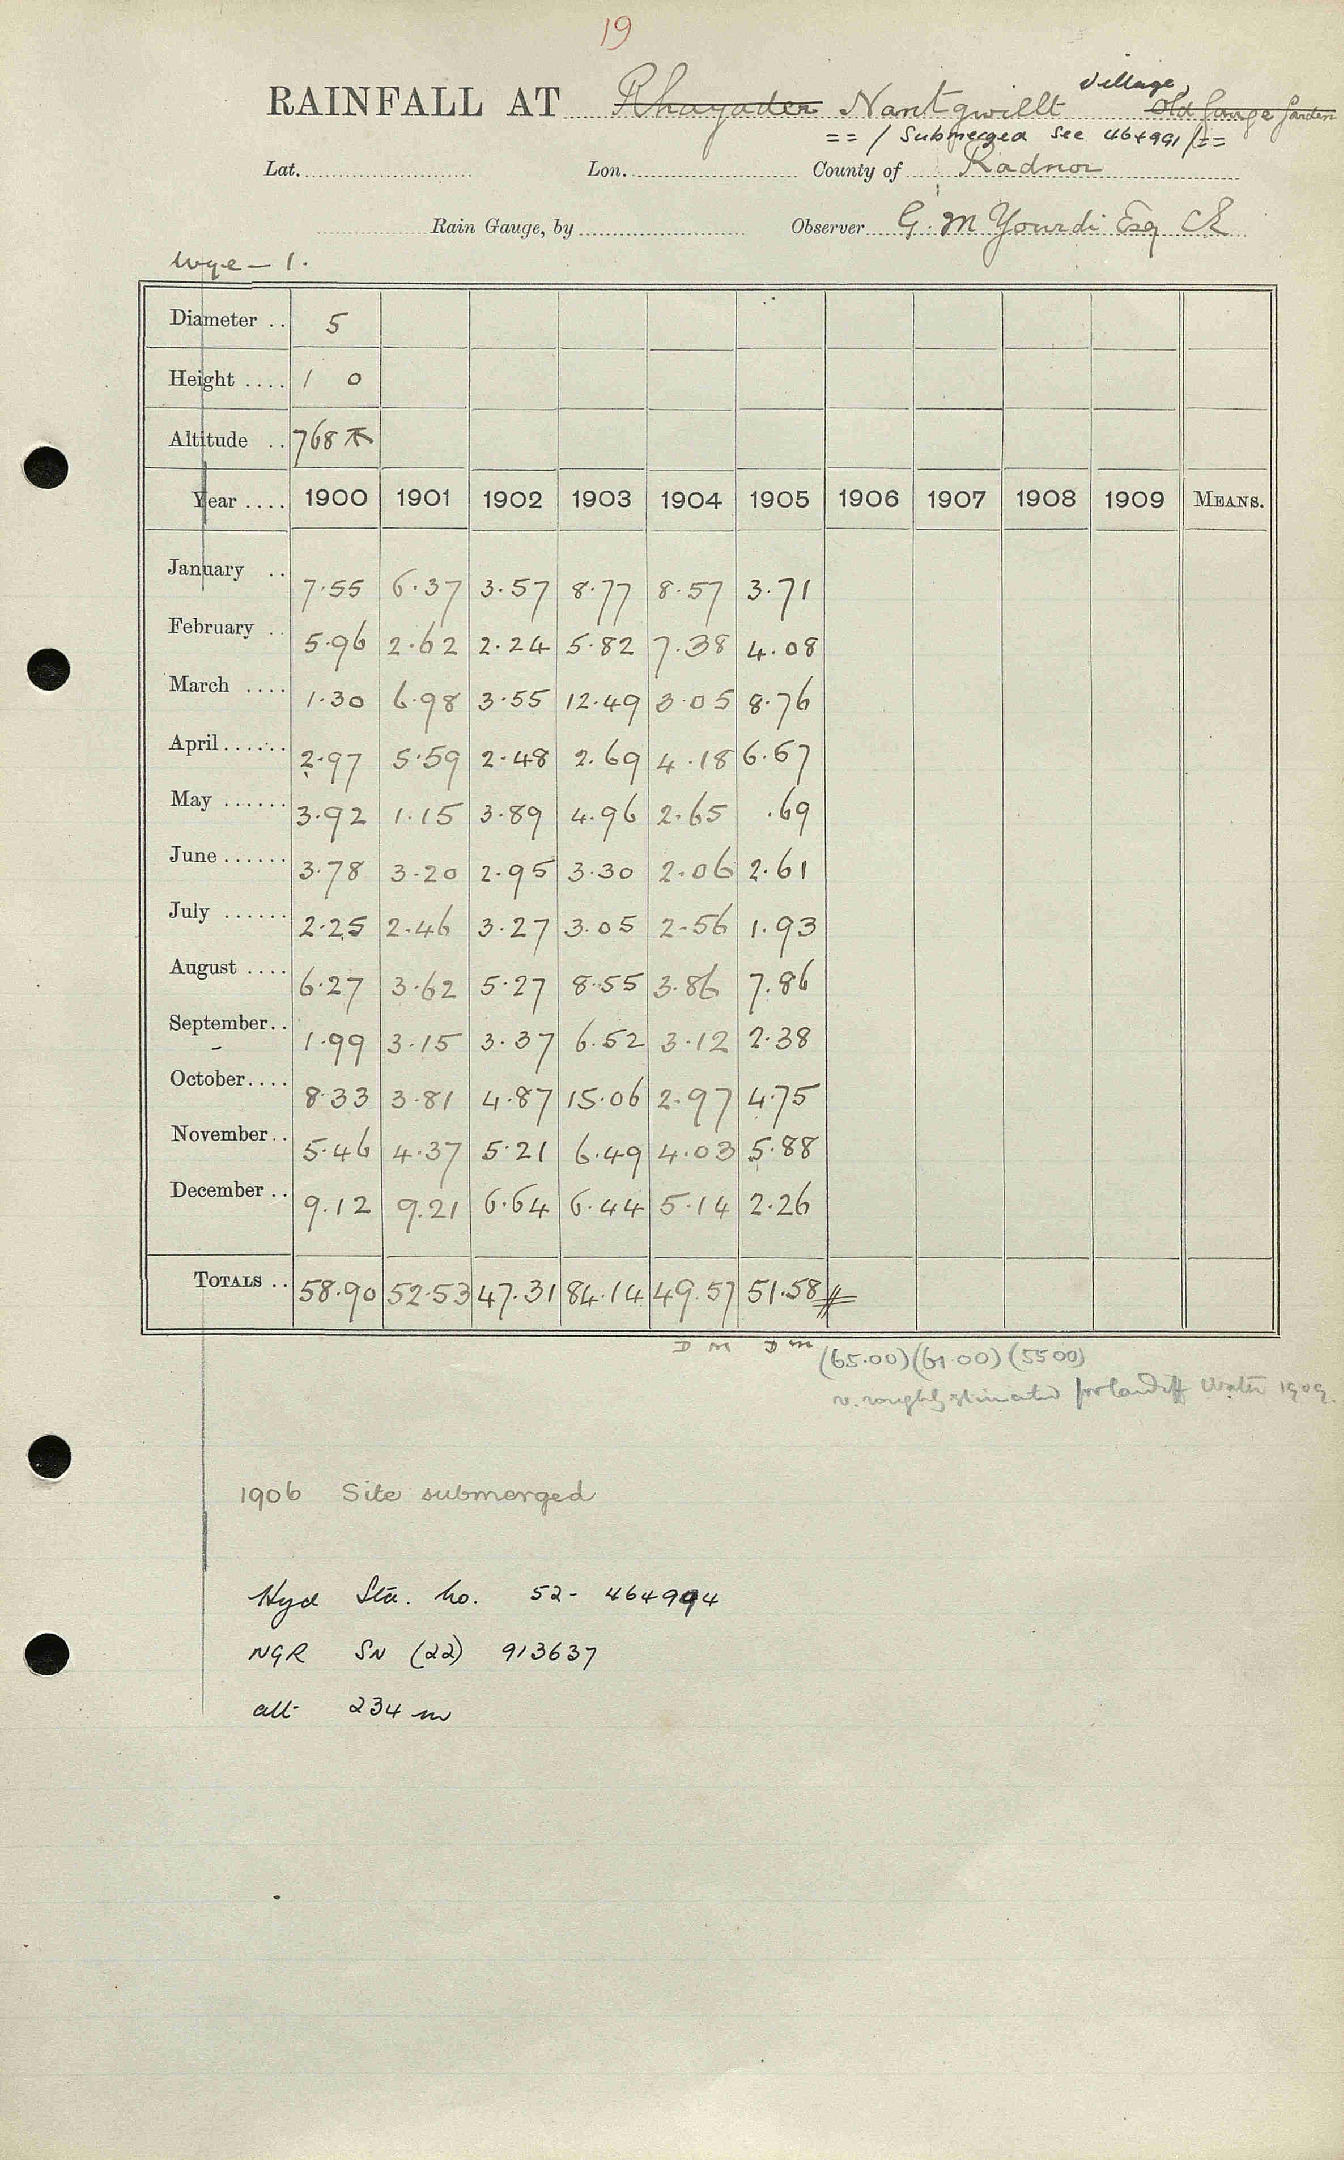 19
RAINFALL AT Rhayader Nantgwillt Village Old Gauge Garden
== / Submerged See 464991 / ==
Lat. Lon. County of Radnor
Rain Gauge, by Observer G. M Yourdi Esq CE
Wye – 1.
Diameter .. 5
Height .... 1 0
Altitude .. 768
Year .... 1900 1901 1902 1903 1904 1905 1906 1907 1908 1909 MEANS.
January .. 7.55 6.37 3.57 8.77 8.57 3.71
February .. 5.96 2.62 2.24 5.82 7.38 4.08
March .... 1.30 6.98 3.55 12.49 3.05 8.76
April...... 2.97 5.59 2.48 2.69 4.18 6.67
May ...... 3.92 1.15 3.89 4.96 2.65 .69
June...... 3.78 3.20 2.95 3.30 2.06 2.61
July ...... 2.25 2.46 3.27 3.05 2.56 1.93
August .... 6.27 3.62 5.27 8.55 3.86 7.86
September.. 1.99 3.15 3.37 6.52 3.12 2.38
October.... 8.33 3.81 4.87 15.06 2.97 4.75
November.. 5.46 4.37 5.21 6.49 4.03 5.88
December .. 9.12 9.21 6.64 6.44 5.14 2.26
TOTALS .. 58.90 52.53 47.31 84.14 49.57 51.58
D M D M (65.00) (61.00) (55 00)
v. roughly estimated for Cardiff Water 1909.
1906 Site submerged
Hyd Sta. No. 52- 464994
NGR SN (22) 913637
alt 234 m